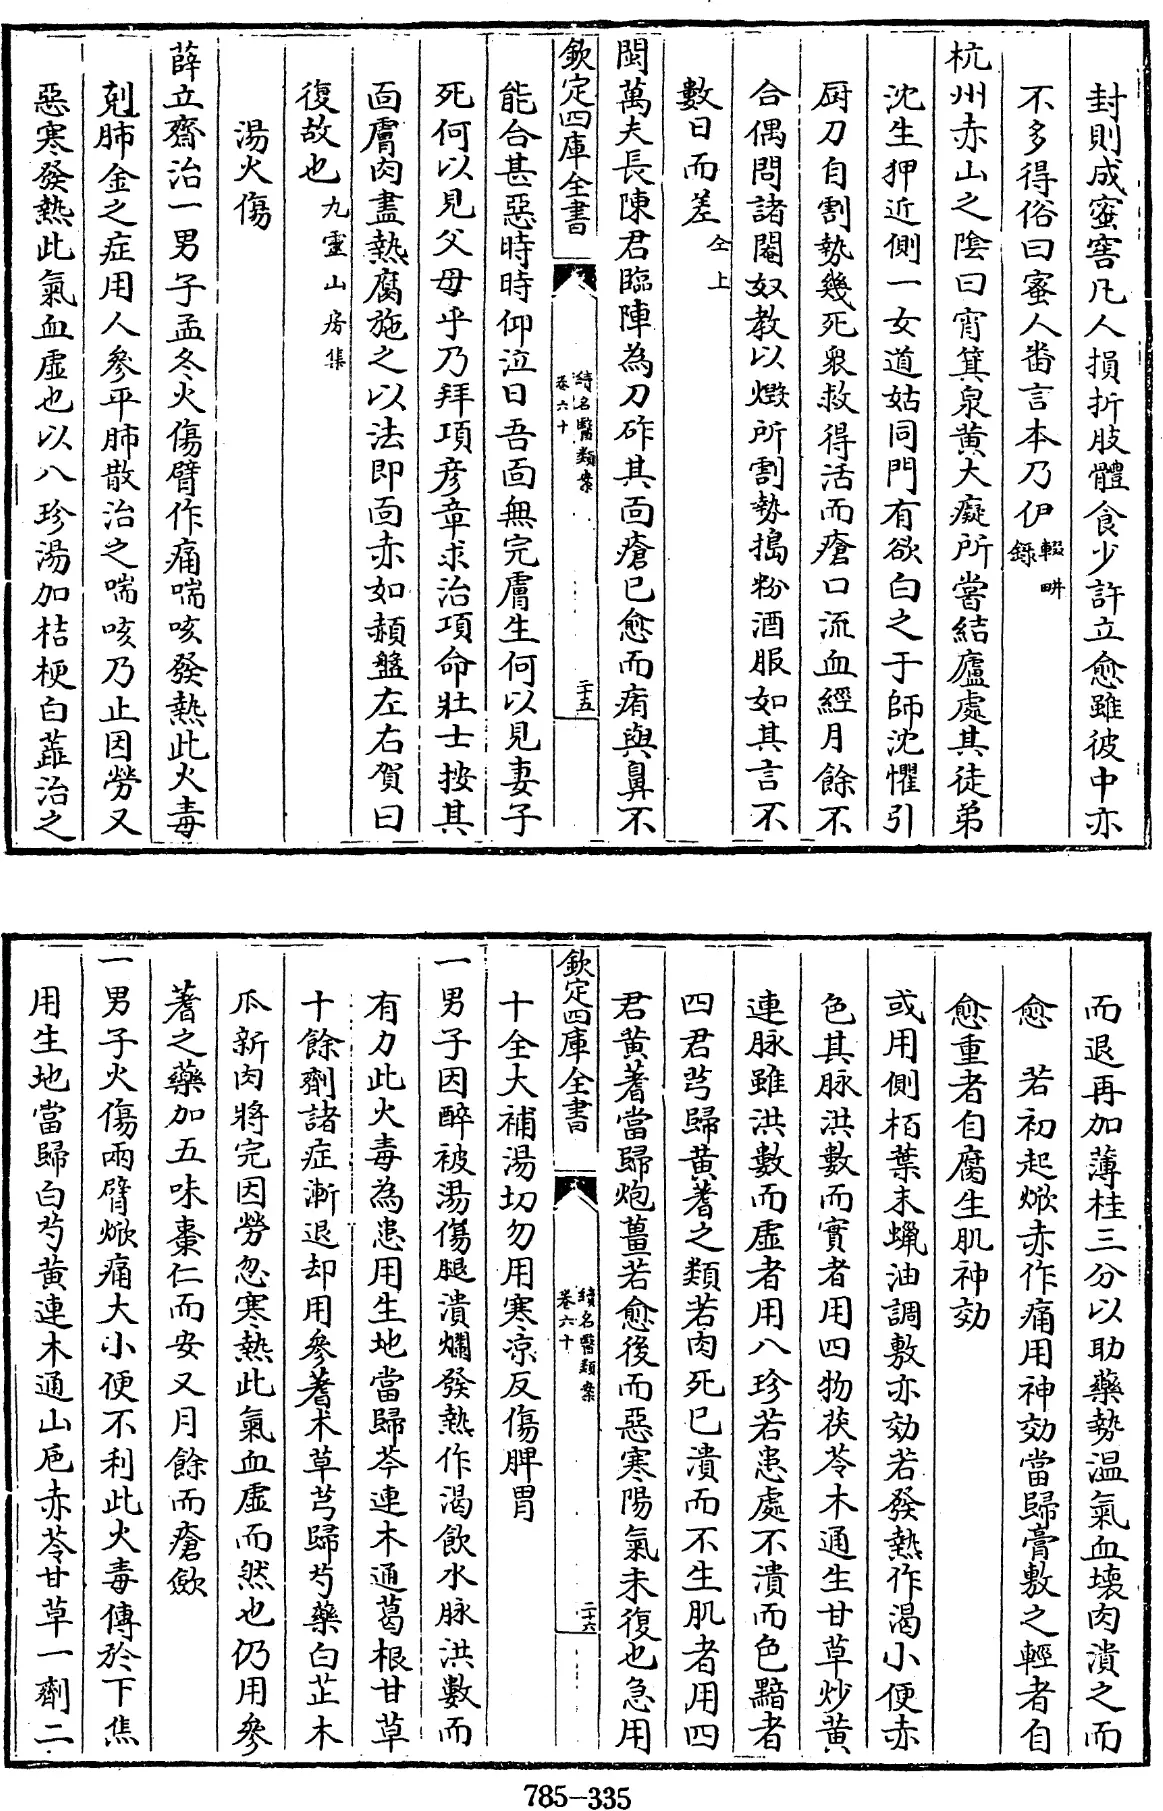 封則成蜜窖凡人損折肢體食少許立愈雖彼中亦
不多得俗曰蜜人番言木乃伊輟畊録
杭州赤山之陰曰宵箕泉黄大癡所嘗結廬處其徒弟
沈生狎近側一女道姑同門有欲白之于師沈懼引
厨刀自割勢幾死衆救得活而瘡口流血經月餘不
合偶問諸閹奴教以燬所割勢搗粉酒服如其言不
數日而差仝上
閩萬夫長陳君臨陣為刀斫其面瘡已愈而瘠與鼻不
欽定四庫全書
續名醫類案
卷六十
二十五
能合甚惡時時仰泣曰吾面無完膚生何以見妻子
死何以見父母乎乃拜項彦章求治項命壯士按其
面膚肉盡熱腐施之以法即面赤如頳盤左右賀曰
復故也九靈山房集
湯火傷
薛立齋治一男子孟冬火傷臂作痛喘咳發熱此火毒
剋肺金之症用人參平肺散治之喘咳乃止因勞又
惡寒發熱此氣血虚也以八珍湯加桔梗白蕋治之
而退再加薄桂三分以助藥勢温氣血壞肉潰之而
愈　若初起焮赤作痛用神効當歸膏敷之輕者自
愈重者自腐生肌神効
或用側栢葉末蠟油調敷亦効若發熱作渴小便赤
色其脉洪數而實者用四物茯苓木通生甘草炒黄
連脉雖洪數而虚者用八珍若患處不潰而色黯者
四君芎歸黄蓍之類若肉死已潰而不生肌者用四
君黄蓍當歸炮薑若愈後而惡寒陽氣未復也急用
欽定四庫全書
續名醫類案
卷六十
二十六
十全大補湯切勿用寒凉反傷脾胃
一男子因醉被湯傷腿潰爛發熱作渴飲水脉洪數而
有力此火毒為患用生地當歸芩連木通葛根甘草
十餘劑諸症漸退却用參蓍术草芎歸芍藥白芷木
瓜新肉將完因勞忽寒熱此氣血虚而然也仍用參
蓍之藥加五味棗仁而安又月餘而瘡斂
一男子火傷兩臂焮痛大小便不利此火毒傳於下焦
用生地當歸白芍黄連木通山巵赤苓甘草一劑二
785-335